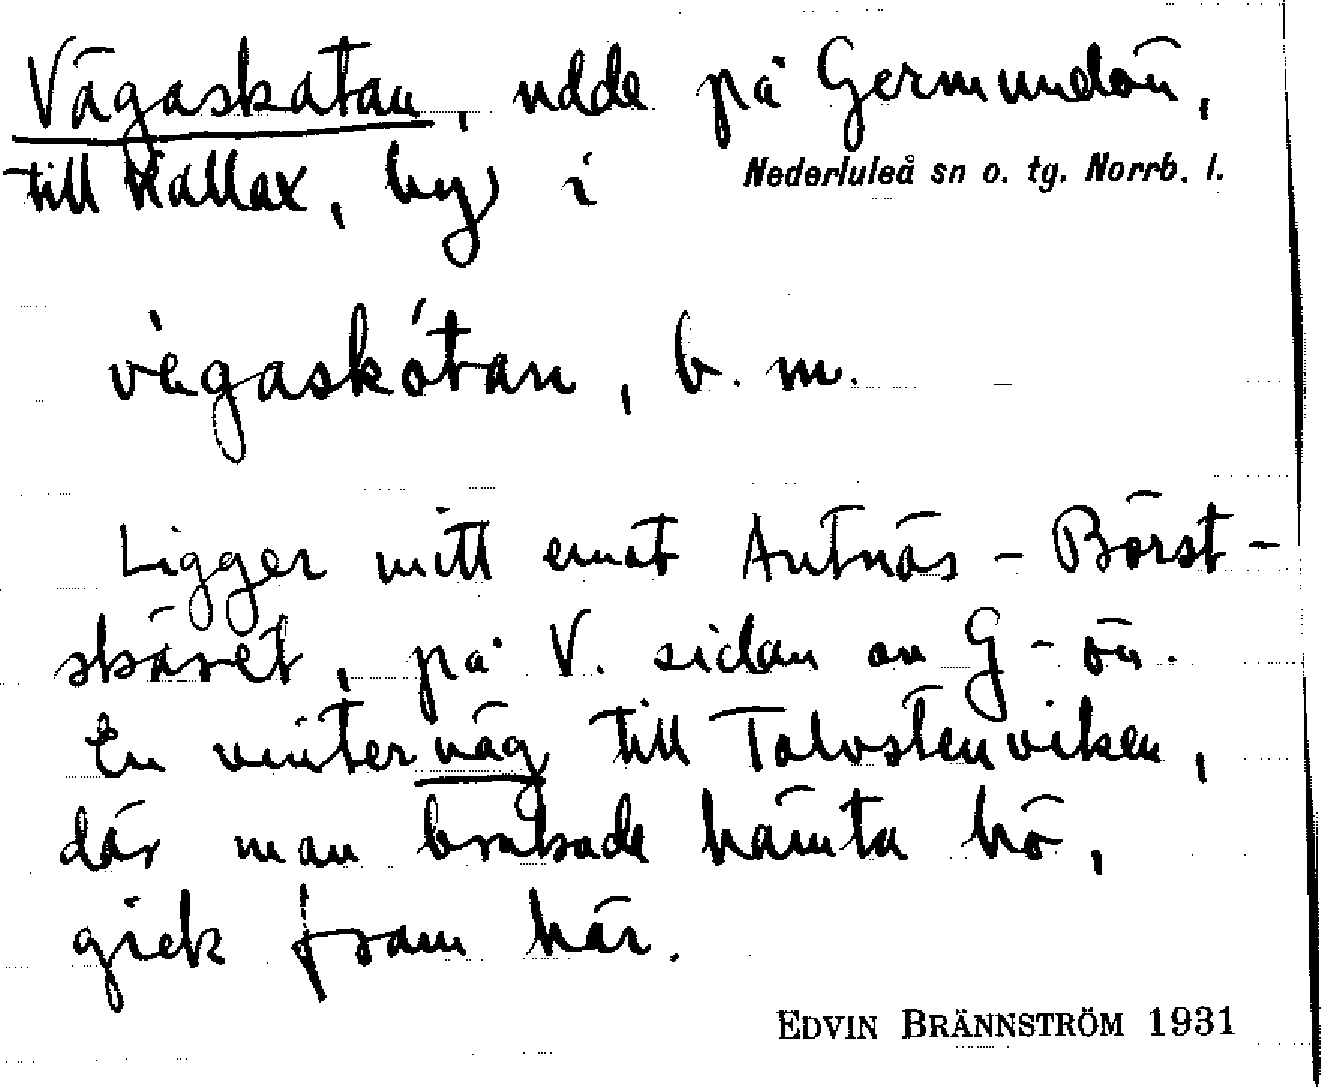 Vägaskatan, udde på Germundön,
till Kallax, by i Nederluleå sn o. tg. Norrb. l.
vègaskátan, b. m.
Ligger mitt emot Antnäs-Börst-
skäret, på V. sidan av G-ön.
En vinterväg till Tolvstenviken,
där man brukade hämta hö,
gick fram här.
EDVIN BRÄNNSTRÖM 1931